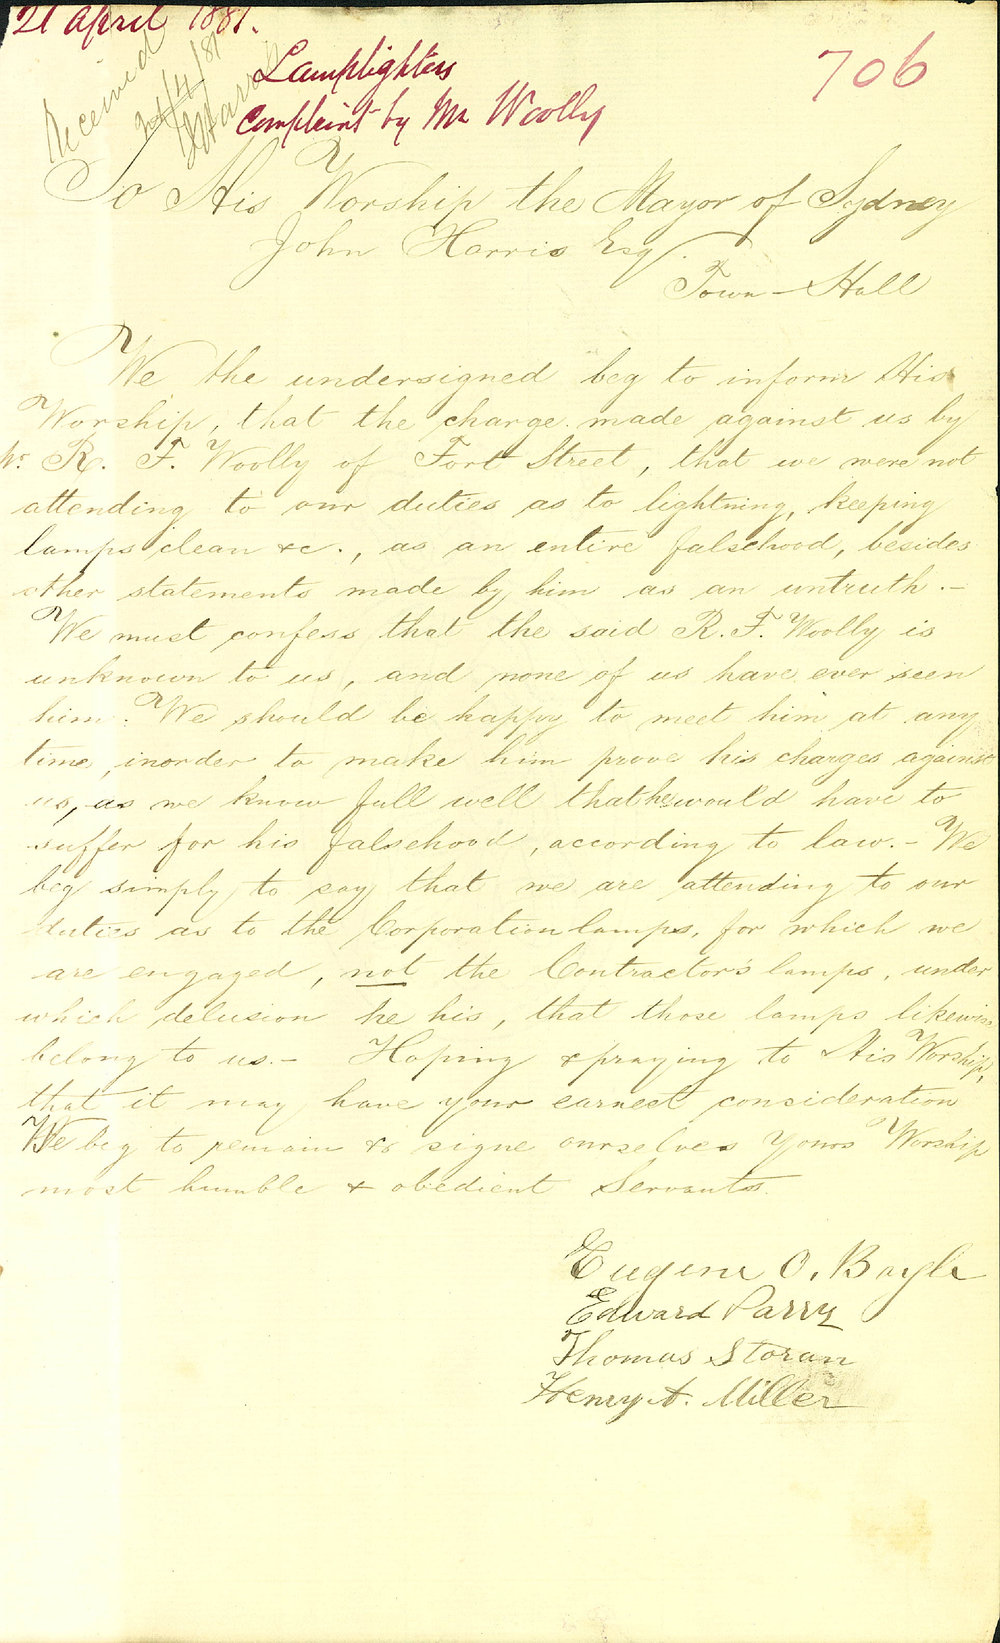 21 April 1881.
706
Lamplighters
Complaint by Mr Woolly
Received
21/4/81
Harris
To His Worship the Mayor of Sydney
John Harris Esq.
Town-Hall
We the undersigned beg to inform His
Worship, that the charge made against us by
Mr. R. F. Woolly of Fort Street, that we were not
attending to our duties as to lightning, keeping
lamps clean &c., as an entire falsehood, besides
other statements made by him as an untruth.-
We must confess that the said R. F. Woolly is
unknown to us, and none of us have ever seen
him. We should be happy to meet him at any
time, inorder to make him prove his charges against
us, as we know full well that he would have to
suffer for his falsehood, according to law.- We
beg simply to say that we are attending to our
duties as to the Corporation lamps, for which we
are engaged, not the Contractor's lamps, under
which delusion he his, that those lamps likewise
belong to us.- Hoping & praying to His Worship,
that it may have your earnest consideration
We beg to remain & signe ourselves Yours Worship
most humble & obedient Servants.
Eugene O. Boyle
Edward Parry
Thomas Storan
Henry A. Miller